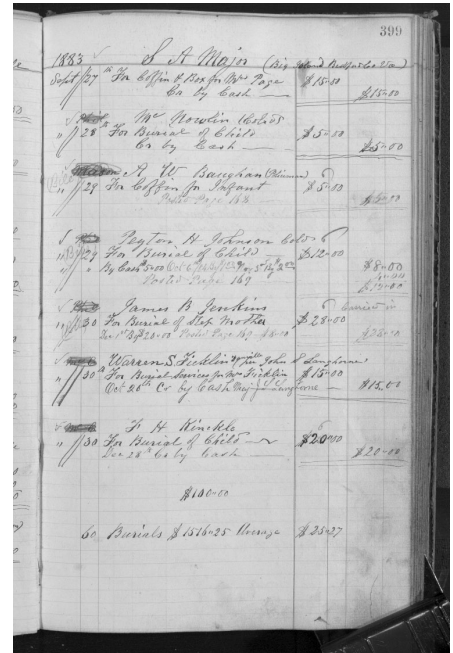 399
1883 S A Major (Big Island Bedford Co Va)
Sept 27th For Coffin & Box for Mrs Page $15.00
Cr by Cash $15.00
Mc Nowlin Cold
" 28th For Burial of Child $5.00
Cr by Cash $5.00
A W Baughan
" 29 For Coffin for Infant $5.00
Posted Page 168
Peyton H Johnson Cold
29 For Burial of Child $12.00
By Cash 5.00 $8.00
Posted Page 169 $12.00
James B Jenkins
" 30 For Burial of Step Mother $28.00
Posted Page 169
Warren S. Ficklin John S Langhorne
" 30th For Burial Services for Mrs Ficklin $15.00
Oct 20th Cr by Cash $15.00
F H Kinckle
" 30 For Burial of Child $20.00
Dec 28th Cr by Cash $20.00
$100.00
60 Burials $1516.25 Average $25.27